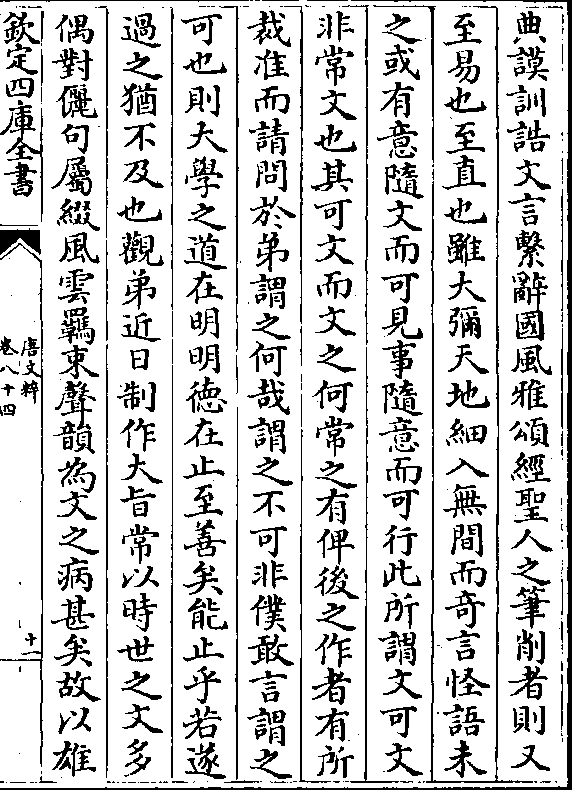 典謨訓誥文言繫辭國風雅頌經聖人之筆削者則又
至易也至直也雖大彌天地細入無間而奇言怪語未
之或有意隨文而可見事隨意而可行此所謂文可文
非常文也其可文而文之何常之有俾後之作者有所
裁准而請問於弟謂之何哉謂之不可非僕敢言謂之
可也則大學之道在明明德在止至善矣能止乎若遂
過之猶不及也觀弟近日制作大旨常以時世之文多
偶對儷句屬綴風雲羈束聲韻為文之病甚矣故以雄
欽定四庫全書
唐文粹
卷八十四
十一